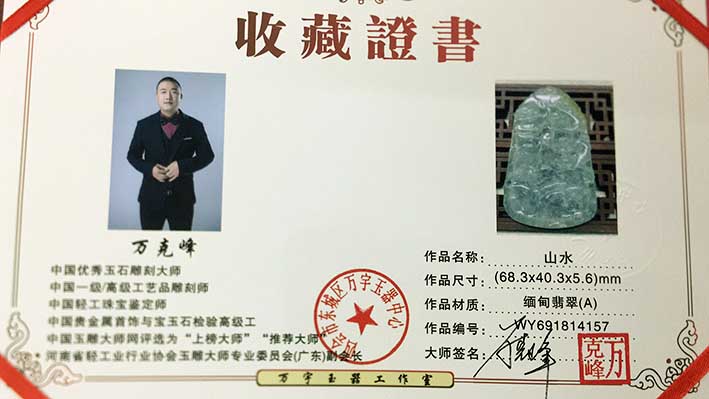 收藏證書
万克峰
中国优秀玉石雕刻大师
中国一级/高级工艺品雕刻师
中国轻工珠宝鉴定师
中国贵金属首饰与宝玉石检验高级工
中国玉雕大师网评选为“上榜大师”“推荐大师”
河南省轻工业行业协会玉雕大师专业委员会(广东)副会长
会市东城区万字玉器中心
作品名称： 山水
作品尺寸： (68.3x40.3x5.6)mm
作品材质： 缅甸翡翠(A)
作品编号： WY691814157
大师签名：
万克峰
万字玉器工作室